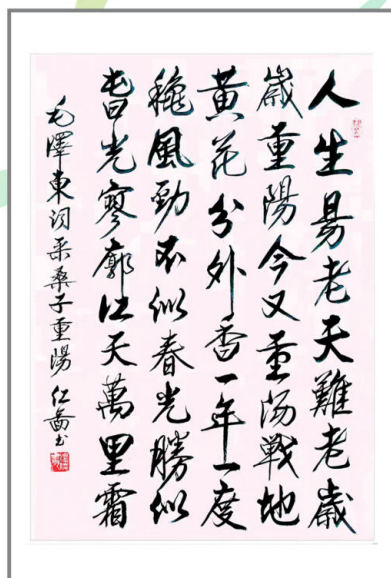 人生易老天難老歲
歲重陽今又重陽戰地
黃花分外香一年一度
穐風勁不似春光勝似
旾光寥廓江天萬里霜
毛澤東词采桑子重陽 仁书